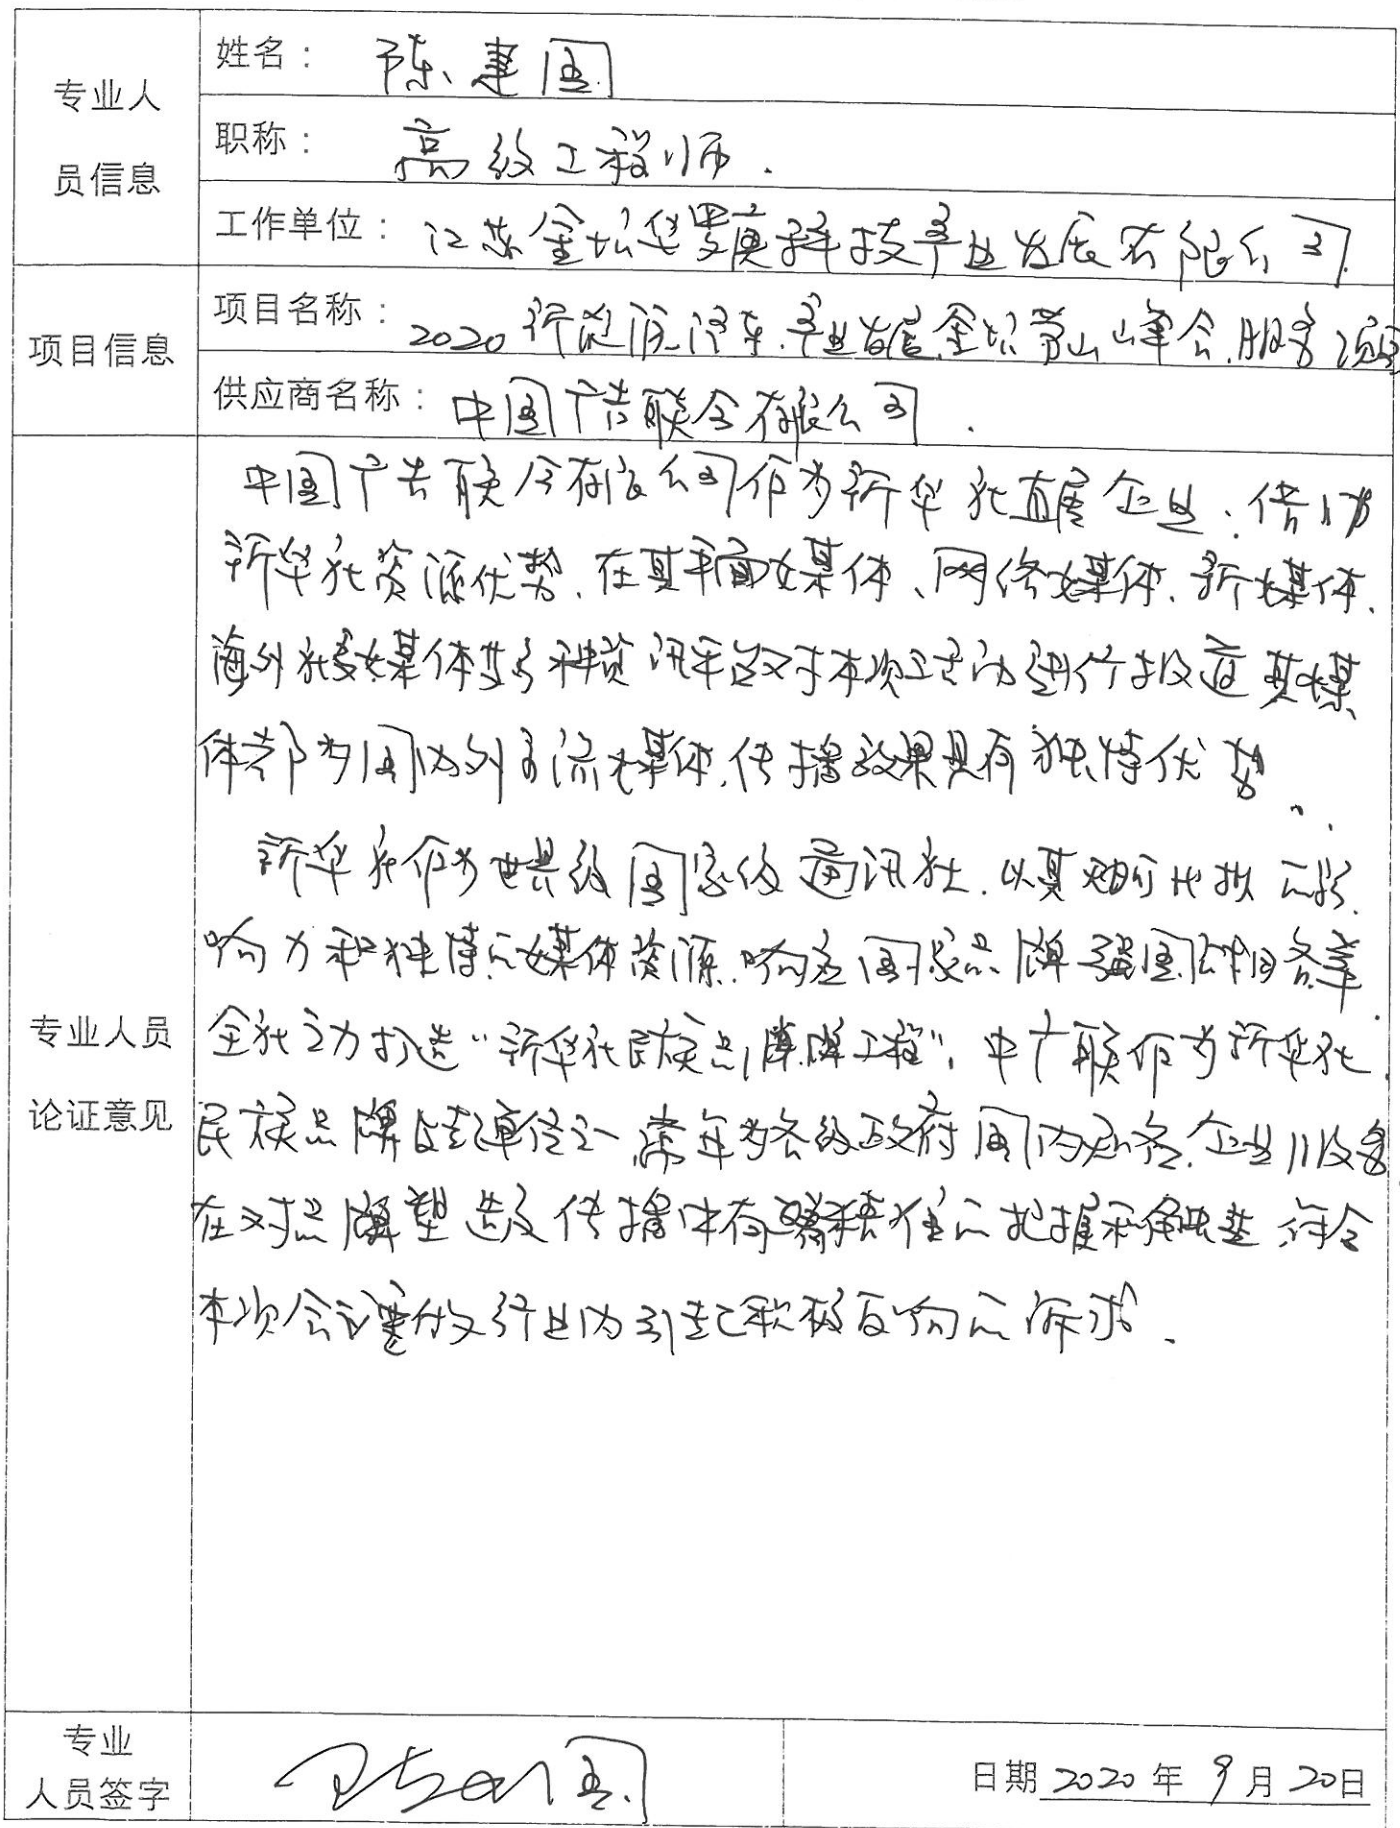 专业人
员信息
姓名： 陈建国
职称： 高级工程师.
工作单位： 江苏金坛华罗庚科技产业发展有限公司.
项目信息
项目名称： 2020新能源汽车产业发展金坛茅山峰会服务项目
供应商名称： 中国广告联合有限公司.
专业人员
论证意见
中国广告联合有限公司作为新华社直属企业.借助
新华社资源优势.在其平面媒体、网络媒体.新媒体.
海外社交媒体等多种资讯平台对本次活动进行报道其媒
体都为国内外主流媒体.传播效果具有独特优势.
新华社作为世界级国家级通讯社.以其无可比拟的影
响力和独特的媒体资源.响应国家品牌强国战略.
全社之力打造“新华社民族品牌工程”,中广联作为新华社
民族品牌单位之一.常年为各级政府国内知名企业服务
在对品牌塑造及传播中有精准的把握和.符合
本次会议在行业内引起积极反响的诉求.
专业
人员签字
陈建国
日期 2020 年 9 月 20日